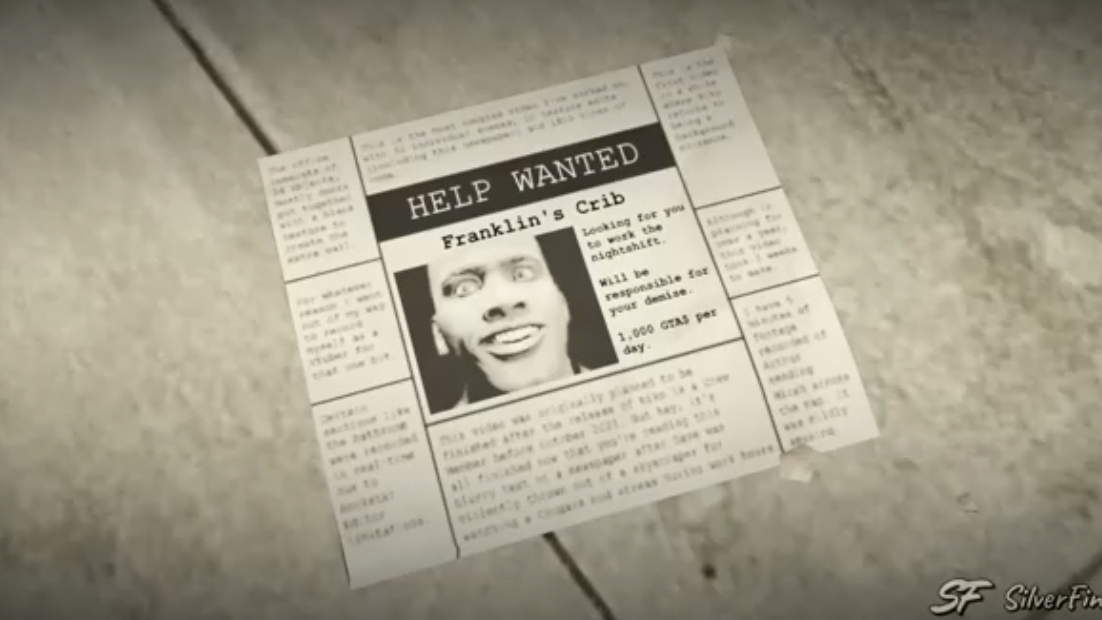 HELP WANTED
Franklin's Crib
Looking for you
to work the
nightshift.
Will be
responsible for
your demise.
1,000 GTA$ per
day.
This is the most complex video I've worked on,
with 52 individual scenes, 10 texture edits
(including this newspaper) and lines of
code.
The office
consists of
objects,
mostly doors
put together
with a black
texture to
create the
extra wall.
For whatever
reason I went
out of my way
to record
myself as a
VTuber for
that one bit.
Certain
sections like
the bathroom
were recorded
in real-time
due to
Rockstar
Editor
limitations.
This is the
first video
in a while
where Niko
returns to
being a
background
nuisance.
Although in
planning for
over a year,
this video
took 3 weeks
to make.
I have 5
minutes of
footage
recorded of
Arthur
sending
Micah across
the map. It
was wildly
amusing.
This video was originally planned to be
finished after the release of Niko is a Crew
Member before October 2021. But hey, it's
all finished now that you're reading this
blurry text on a newspaper after Dave was
violently thrown out of a skyscraper for
watching a Cougars Rod stream during work hours
SF SilverFin